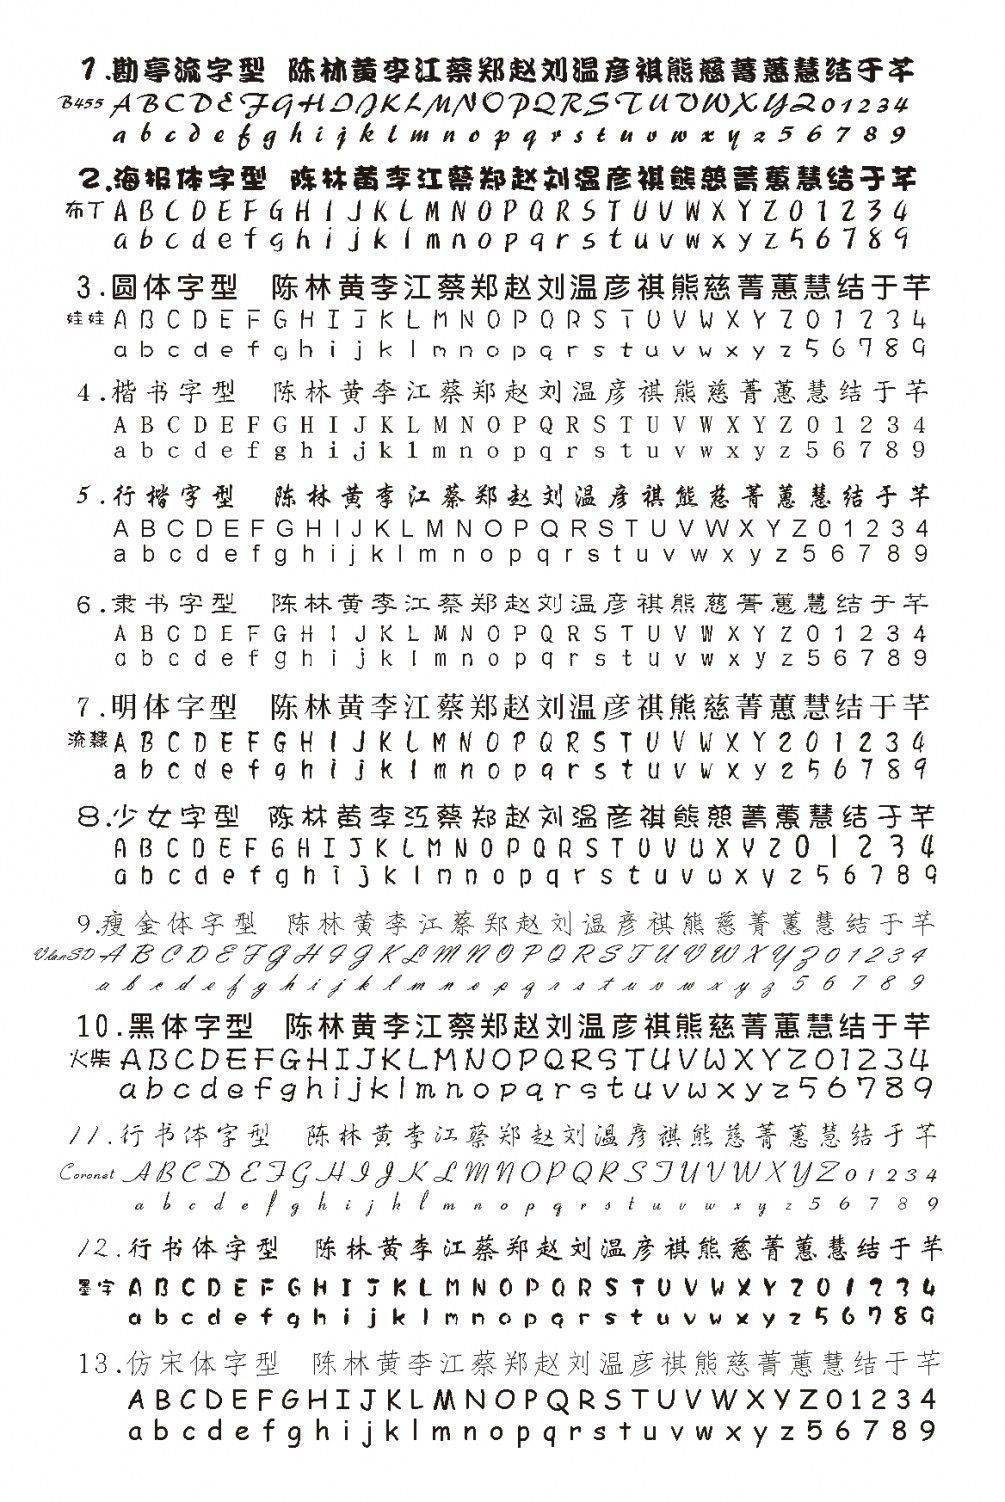 1.勘亭流字型 陈林黄李江蔡郑赵刘温彦祺熊慈菁蕙慧结于芊
B455 ABCDEFGHIJKLMNOPQRSTUVWXYZ01234
abcdefghijklmnopqrstuvwxyz56789
2.海报体字型 陈林黄李江蔡郑赵刘温彦祺熊慈菁蕙慧结于芊
布丁 ABCDEFGHIJKLMNOPQRSTUVWXYZ01234
abcdefghijklmnopqrstuvwxyz56789
3.圆体字型 陈林黄李江蔡郑赵刘温彦祺熊慈菁蕙慧结于芊
娃娃 ABCDEFGHIJKLMNOPQRSTUVWXYZ01234
abcdefghijklmnopqrstuvwxyz56789
4.楷书字型 陈林黄李江蔡郑赵刘温彦祺熊慈菁蕙慧结于芊
ABCDEFGHIJKLMNOPQRSTUVWXYZ01234
abcdefghijklmnopqrstuvwxyz56789
5.行楷字型 陈林黄李江蔡郑赵刘温彦祺熊慈菁蕙慧结于芊
ABCDEFGHIJKLMNOPQRSTUVWXYZ01234
abcdefghijklmnopqrstuvwxyz56789
6.隶书字型 陈林黄李江蔡郑赵刘温彦祺熊慈菁蕙慧结于芊
ABCDEFGHIJKLMNOPQRSTUVWXYZ01234
abcdefghijklmnopqrstuvwxyz56789
7.明体字型 陈林黄李江蔡郑赵刘温彦祺熊慈菁蕙慧结于芊
流隸 ABCDEFGHIJKLMNOPQRSTUVWXYZ01234
abcdefghijklmnopqrstuvwxyz56789
8.少女字型 陈林黄李江蔡郑赵刘温彦祺熊慈菁蕙慧结于芊
ABCDEFGHIJKLMNOPQRSTUVWXYZ01234
abcdefghijklmnopqrstuvwxyz56789
9.瘦金体字型 陈林黄李江蔡郑赵刘温彦祺熊慈菁蕙慧结于芊
VlanSD ABCDEFGHIJKLMNOPQRSTUVWXYZ01234
abcdefghijklmnopqrstuvwxyz56789
10.黑体字型 陈林黄李江蔡郑赵刘温彦祺熊慈菁蕙慧结于芊
火柴 ABCDEFGHIJKLMNOPQRSTUVWXYZ01234
abcdefghijklmnopqrstuvwxyz56789
11.行书体字型 陈林黄李江蔡郑赵刘温彦祺熊慈菁蕙慧结于芊
Coronet ABCDEFGHIJKLMNOPQRSTUVWXYZ01234
abcdefghijklmnopqrstuvwxyz56789
12.行书体字型 陈林黄李江蔡郑赵刘温彦祺熊慈菁蕙慧结于芊
墨字 ABCDEFGHIJKLMNOPQRSTUVWXYZ01234
abcdefghijklmnopqrstuvwxyz56789
13.仿宋体字型 陈林黄李江蔡郑赵刘温彦祺熊慈菁蕙慧结于芊
ABCDEFGHIJKLMNOPQRSTUVWXYZ01234
abcdefghijklmnopqrstuvwxyz56789